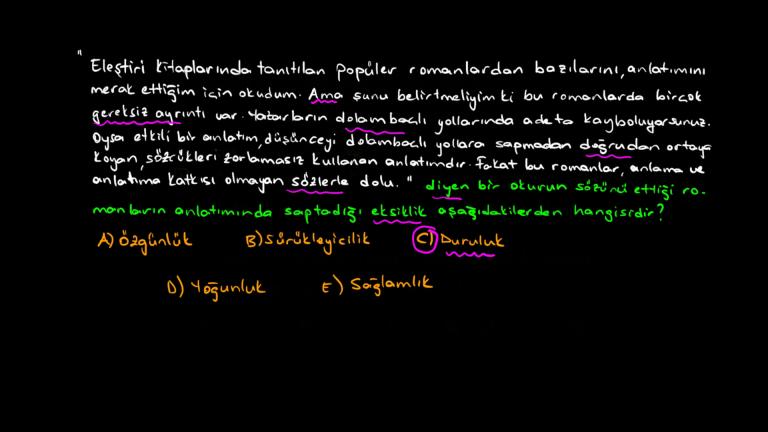 "
Eleştiri kitaplarında tanıtılan popüler romanlardan bazılarını, anlatımını
merak ettiğim için okudum. Ama şunu belirtmeliyim ki bu romanlarda birçok
gereksiz ayrıntı var. Yazarların dolambaçlı yollarında adeta kayboluyorsunuz.
Oysa etkili bir anlatım, düşünceyi dolambaçlı yollara sapmadan doğrudan ortaya
koyan, sözcükleri zorlamasız kullanan anlatımdır. Fakat bu romanlar, anlama ve
anlatıma katkısı olmayan sözlerle dolu." diyen bir okurun sözünü ettiği ro-
manların anlatımında saptadığı eksiklik aşağıdakilerden hangisidir?
A) Özgünlük B) Sürükleyicilik C) Duruluk
D) Yoğunluk E) Sağlamlık